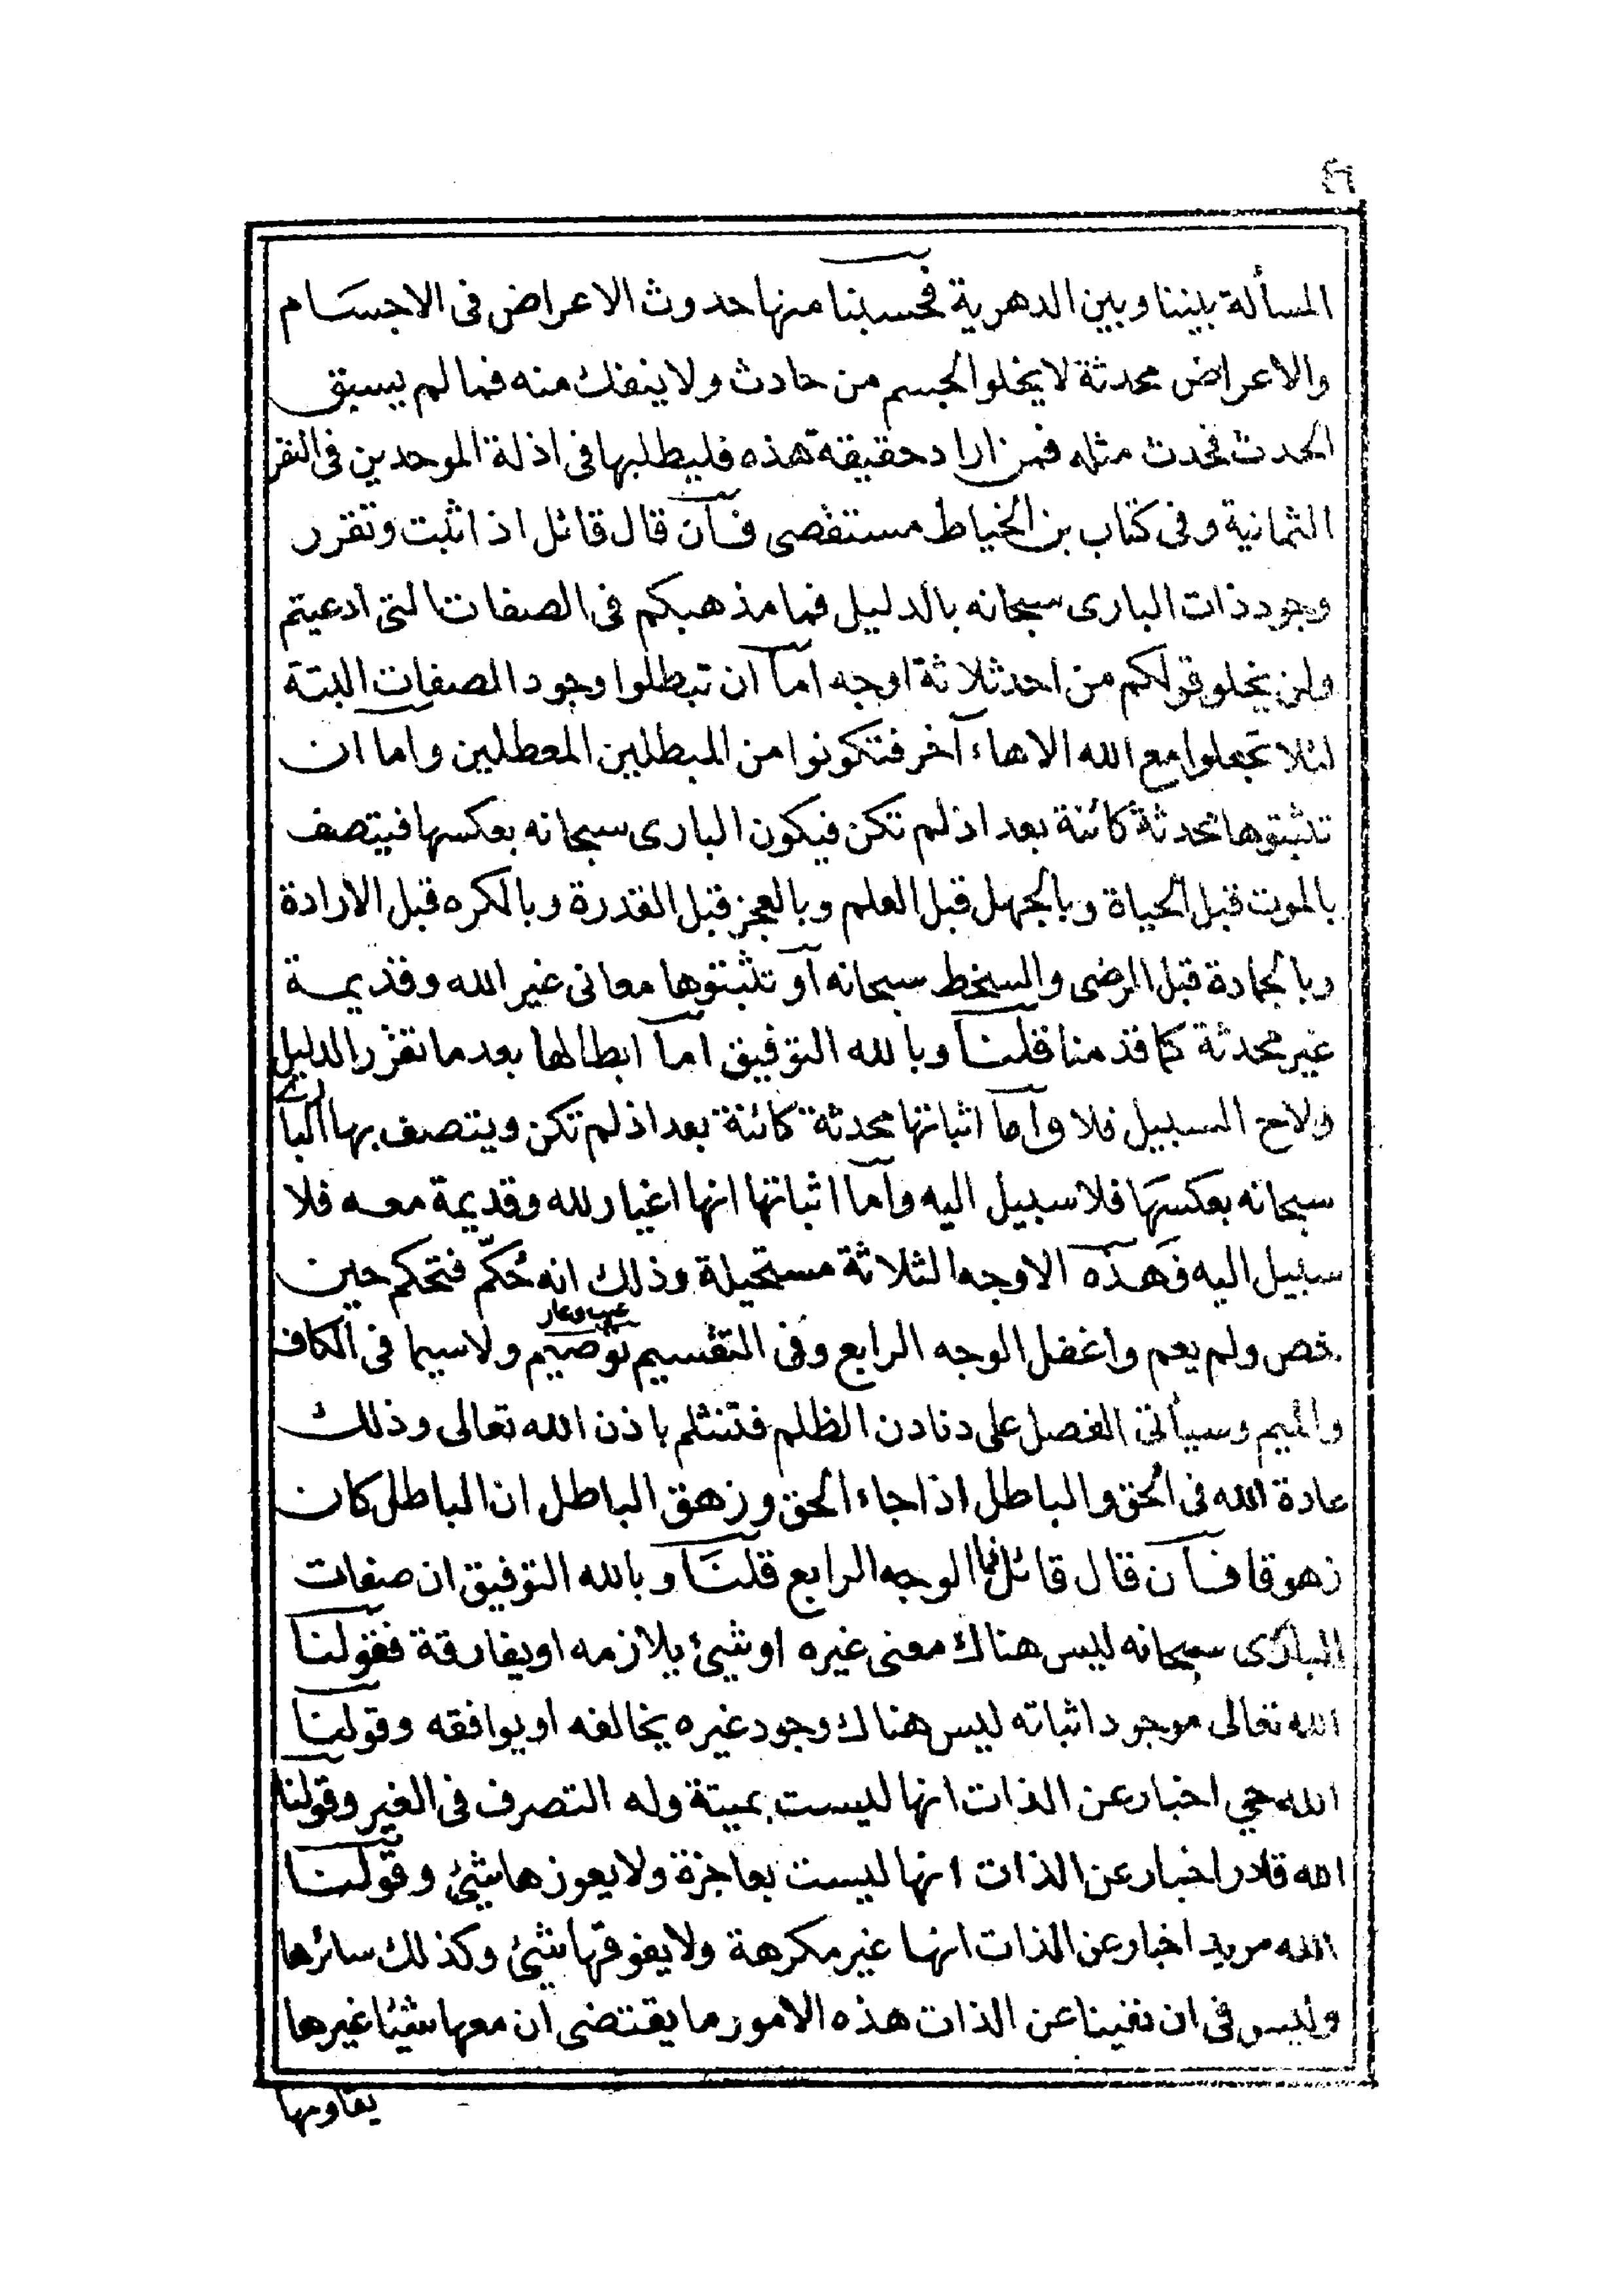 ٤٦
المسألة بيننا وبين الدهرية فحسبنا منها حدوث الاعراض فى الاجسام
والاعراض محدثة لا يخلو الجسم من حادث ولا ينفك منه فما لم يسبق
الحدث فحدث مثله فمن اراد حقيقة هذه فليطلبها فى ادلة الموحدين فى النقر
الثمانية وفى كتاب بن الخياط مستقصى فان قال قائل اذا ثبت وتقرر
وجود ذات البارى سبحانه بالدليل فما مذهبكم فى الصفات التى ادعيتم
ولن يخلو قولكم من احد ثلاثة اوجه اما ان تبطلوا وجود الصفات البتة
لئلا تجعلوا مع الله الاهاء آخر فتكونوا من المبطلين المعطلين واما ان
تثبتوها محدثة كائنة بعد اذ لم تكن فيكون البارى سبحانه بعكسها فيتصف
بالموت قبل الحياة وبالجهل قبل العلم وبالعجز قبل القدرة وبالكره قبل الارادة
وبالجمادة قبل الرضى والسخط سبحانه او تثبتوها معانى غير الله وقديمة
غير محدثة كما قدمنا قلنا وبالله التوفيق اما ابطالها بعد ما تقرر الدليل
ولاح السبيل فلا واما اثباتها محدثة كائنة بعد اذ لم تكن ويتصف بها البارى
سبحانه بعكسها فلا سبيل اليه واما اثباتها انها اغيار لله وقديمة معه فلا
سبيل اليه فهذه الاوجه الثلاثة مستحيلة وذلك انه حُكّم فتحكم حين
خص ولم يعم واغفل الوجه الرابع وفى التقسيم توصيم ولا سيما فى الكاف
عيب وعار
والميم وسيأتى الفصل على دنادن الظلم فتنثلم باذن الله تعالى وذلك
عادة الله فى الحق والباطل اذا جاء الحق وزهق الباطل ان الباطل كان
زهوقا فان قال قائل فما الوجه الرابع قلنا وبالله التوفيق ان صفات
البارى سبحانه ليس هناك معنى غيره او شيئ يلازمه او يفارقة فقولنا
الله تعالى موجود اثباته ليس هناك وجود غيره يخالفه او يوافقه وقولنا
الله حي اخبار عن الذات انها ليست بميتة وله التصرف فى الغير وقولنا
الله قادر اخبار عن الذات انها ليست بعاجزة ولا يعوزها شيئ وقولنا
الله مريد اخبار عن الذات انها غير مكرهة ولا يفوقها شيئ وكذلك سائرها
وليس فى ان نفينا عن الذات هذه الامور ما يقتضى ان معها شيئا غيرها
يقاومها